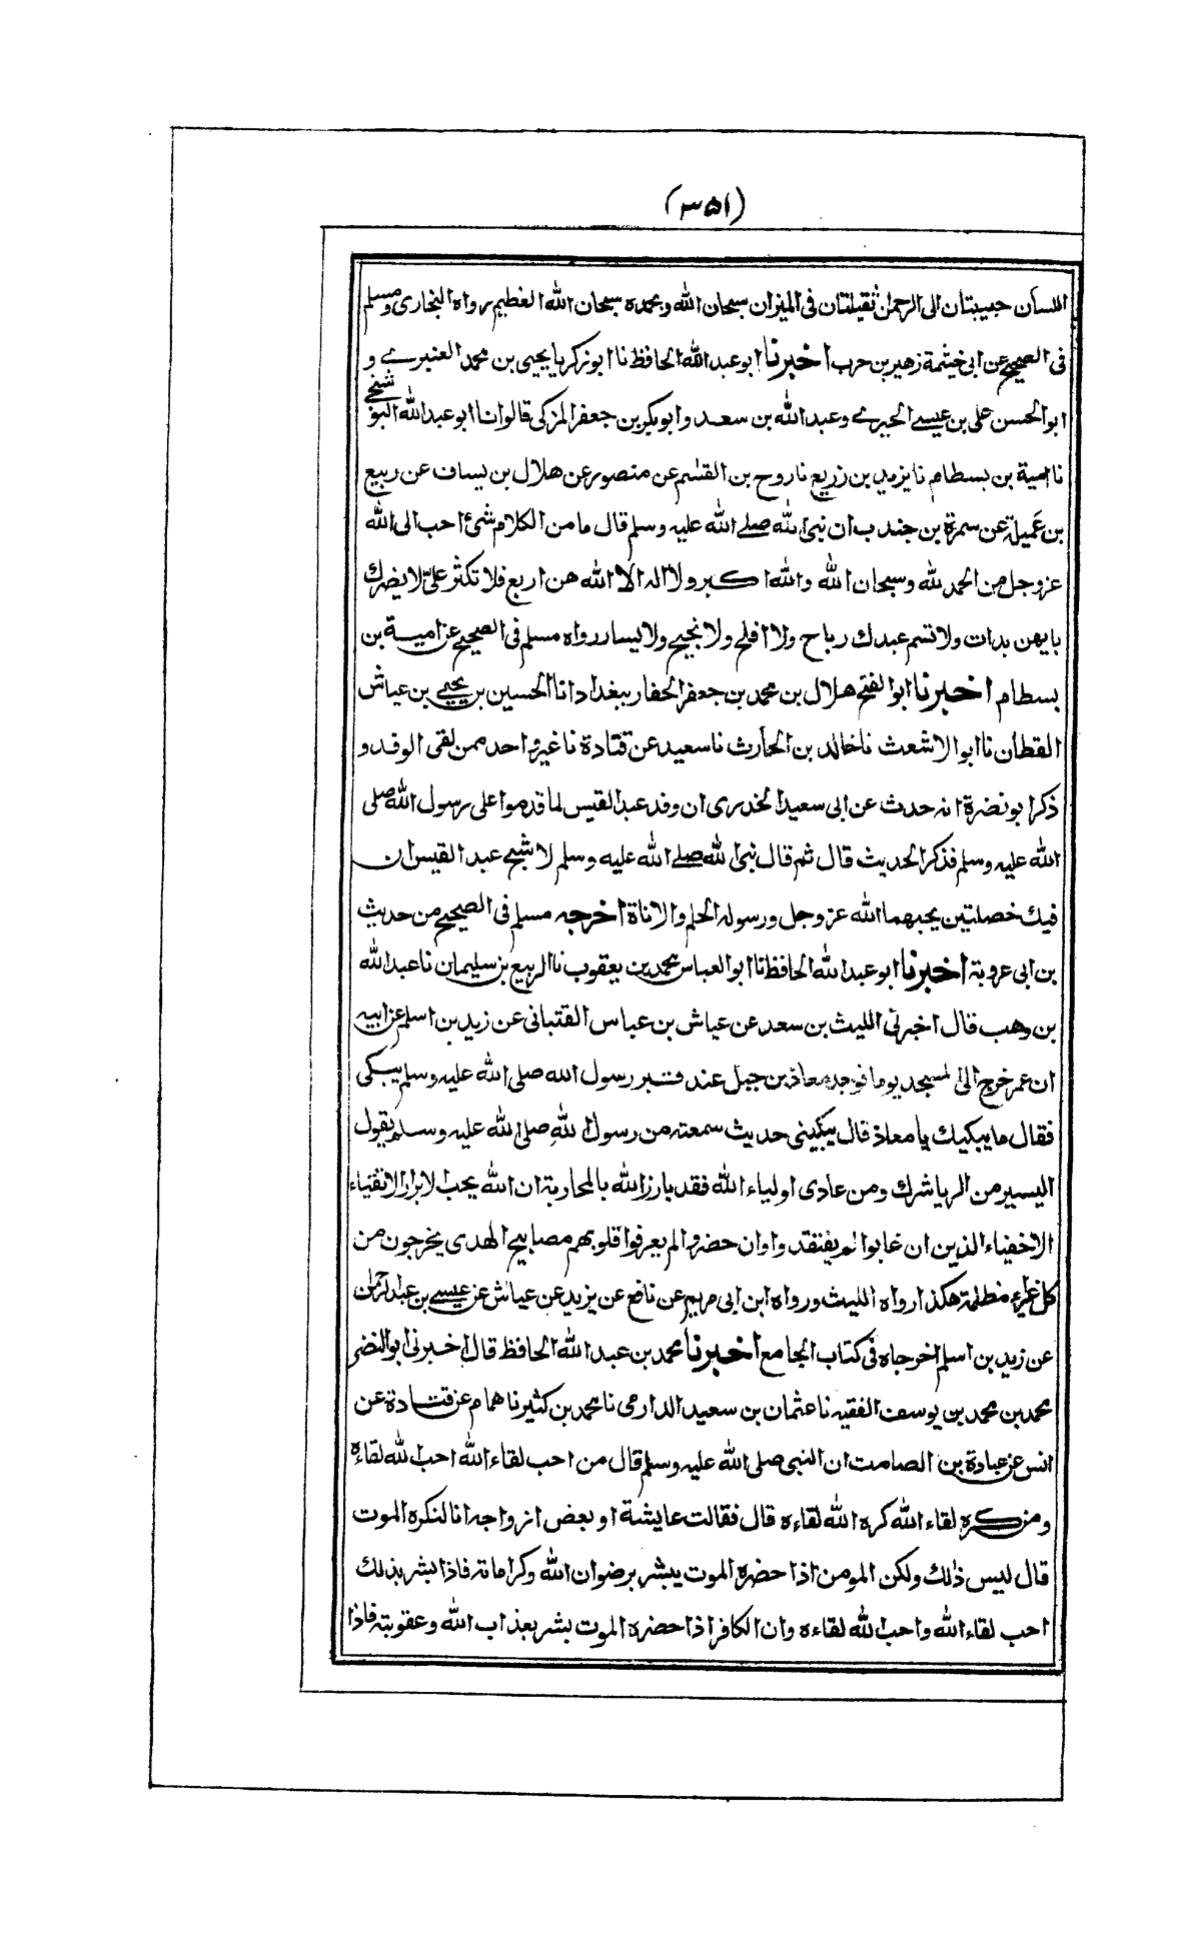 (۳۵۱)
اللسان حبيبتان الى الرحمن ثقيلتان فى الميزان سبحان الله وبحمده سبحان الله العظيم رواه البخارى ومسلم
فى الصحيح عن ابى خيثمة زهير بن حرب اخبرنا ابو عبد الله الحافظ نا ابو زكريا يحيى بن محمد العنبرے و
ابو الحسن على بن عيسے الحيرے وعبد الله بن سعد وابو بكر بن جعفر المزكى قالوا نا ابو عبد الله البوشنجے
نا امية بن بسطام نا يزيد بن زريع نا روح بن القسم عن منصور عن هلال بن يساف عن ربيع
بن عَميلة عن سمرة بن جندب ان نبى الله صلے الله عليه وسلم قال ما من الكلام شئ احب الى الله
عز وجل من الحمد لله وسبحان الله والله اكبر ولا اله الا الله هن اربع فلا تكثر علىّ لا يضرك
بايهن بدات ولا تسم عبدك رباح ولا افلح ولا نجيح ولا يسار رواه مسلم فى الصحيح عن امية بن
بسطام اخبرنا ابو الفتح هلال بن محمد بن جعفر الحفار ببغداد انا الحسين بن يحيے بن عياش
القطان نا ابو الاشعث نا خالد بن الحارث نا سعيد عن قتادة نا غير واحد ممن لقى الوفد و
ذكر ابو نضرة انه حدث عن ابى سعيد الخدرى ان وفد عبد القيس لما قدموا على رسول الله صلى
الله عليه وسلم فذكر الحديث قال ثم قال نبى الله صلے الله عليه وسلم لاشج عبد القيس ان
فيك خصلتين يحبهما الله عز وجل ورسوله الحلم والاناة اخرجه مسلم فى الصحيح من حديث
بن ابى عروبة اخبرنا ابو عبد الله الحافظ نا ابو العباس محمد بن يعقوب نا الربيع بن سليمان نا عبد الله
بن وهب قال اخبرنى الليث بن سعد عن عياش بن عباس القتبانى عن زيد بن اسلم عن ابيه
ان عمر خرج الى المسجد يوما فوجد معاذ بن جبل عند قبر رسول الله صلى الله عليه وسلم يبكى
فقال ما يبكيك يا معاذ قال يبكينى حديث سمعته من رسول الله صلى الله عليه وسلم يقول
اليسير من الريا شرك ومن عادى اولياء الله فقد بارز الله بالمحاربة ان الله يحب الابرار الاتقياء
الاخفياء الذين ان غابوا لم يفتقدوا وان حضروا لم يعرفوا قلوبهم مصابيح الهدى يخرجون من
كل غبراء مظلمة هكذا رواه الليث ورواه ابن ابى مريم عن نافع عن يزيد عن عياش عن عيسے بن عبد الرحمن
عن زيد بن اسلم اخرجاه فى كتاب الجامع اخبرنا محمد بن عبد الله الحافظ قال اخبرنى ابو النضر
محمد بن محمد بن يوسف الفقيه نا عثمان بن سعيد الدارمى نا محمد بن كثير نا همام عن قتادة عن
انس عن عبادة بن الصامت ان النبى صلى الله عليه وسلم قال من احب لقاء الله احب الله لقاءه
ومن كره لقاء الله كره الله لقاءه قال فقالت عايشة او بعض ازواجه انا لنكره الموت
قال ليس ذلك ولكن المومن اذا حضره الموت يبشر برضوان الله وكراماته فاذا بشر بذلك
احب لقاء الله واحب الله لقاءه وان الكافر اذا حضره الموت بشر بعذاب الله وعقوبته فاذا